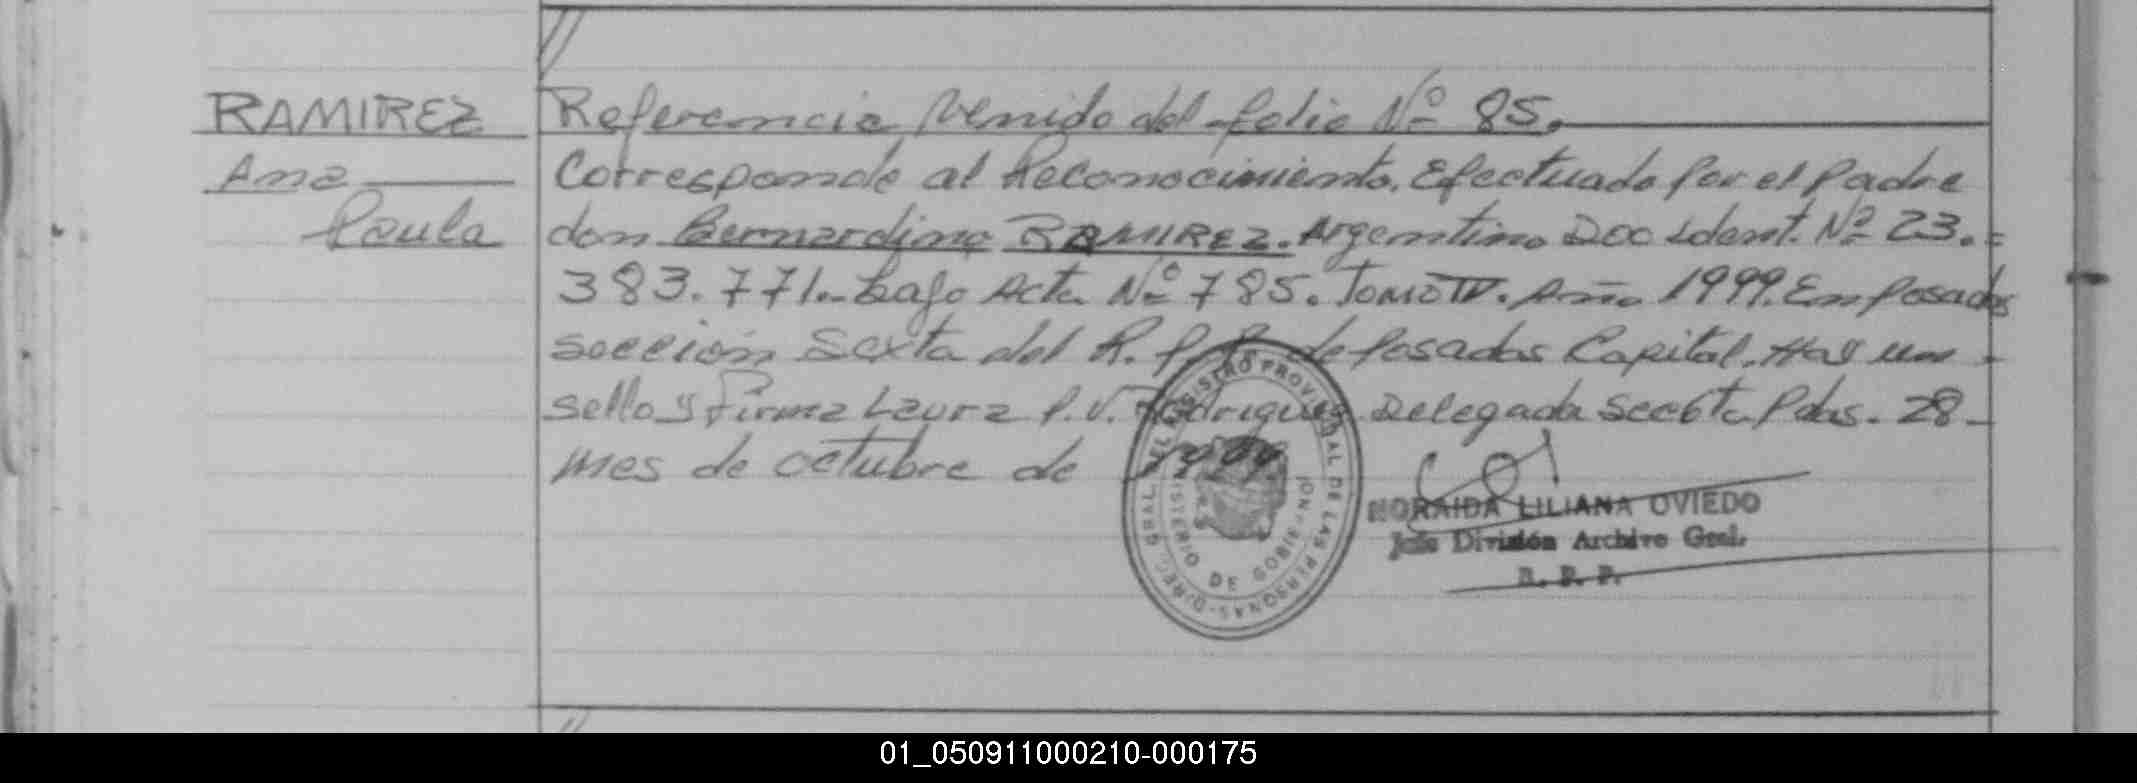 RAMIREZ
Ana
Paula
Referencia Venido del folio Nº 85.
Corresponde al Reconocimiento. Efectuado por el Padre
don Bernardino RAMIREZ. Argentino Doc Ident. Nº 23.=
383.771.- bajo Acta Nº 785. Tomo IV. Año 1999. En Posadas
sección Sexta del R. P. P. de Posadas Capital. Hay un -
sello y Firma Laura P. V. Rodriguez Delegada Secc 6ta Pdas. 28-
mes de octubre de
DIREC. GRAL. DEL REGISTRO PROVINCIAL DE LAS PERSONAS
MINISTERIO DE GOBIERNO
NORAIDA LILIANA OVIEDO
Jefe División Archivo Gral.
R. P. P.
01_050911000210-000175